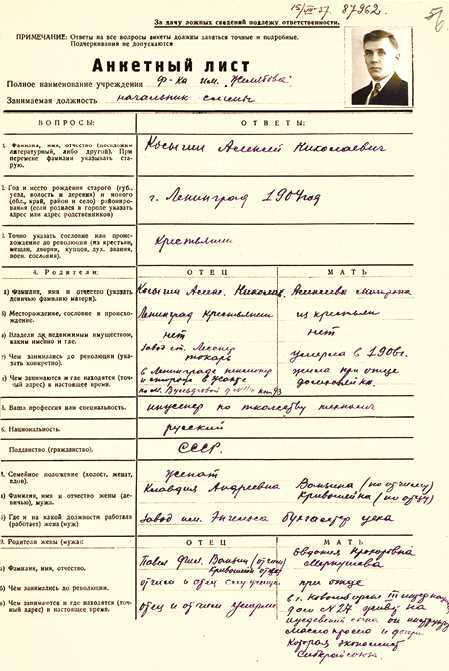 15/VII-37. 87962.
За дачу ложных сведений подлежу ответственности.
ПРИМЕЧАНИЕ: Ответы на все вопросы анкеты должны даваться точные и подробные.
Подчеркивания не допускаются
Анкетный лист
Полное наименование учреждения ф-ка им. "Желябова"
Занимаемая должность начальник смены
ВОПРОСЫ: ОТВЕТЫ:
1. Фамилия, имя, отчество (псевдоним
литературный, либо другой). При
перемене фамилии указывать ста-
рую.
Косыгин Алексей Николаевич
2. Год и место рождения старого (губ.,
уезд, волость и деревня) и нового
(обл., край, район и село) районирова-
ния (если родился в городе указать
адрес или адрес родственников)
г. Ленинград 1904 год
3. Точно указать сословие или проис-
хождение до революции (из крестьян,
мещан, дворян, купцов, дух. звания,
воен. сословия).
Крестьянин
4. Родители: ОТЕЦ МАТЬ
а) Фамилия, имя и отчество (указать
девичью фамилию матери).
Косыгин Никол.
б) Месторождение, сословие и происхо-
ждение.
Ленинград крестьянин из крестьян
в) Владели ли недвижимым имуществом,
каким именно и где.
нет нет
г) Чем занимались до революции (ука-
зать конкретно).
завод токарь
умерла в 1906 г.
д) Чем занимаются и где находятся (точ-
ный адрес) в настоящее время.
в Ленинграде пенсионер
жила при отце
домохозяйка.
5. Ваша профессия или специальность.
инженер по
6. Национальность.
русский
Подданство (гражданство).
СССР.
8. Семейное положение (холост, женат,
вдов).
женат
а) Фамилия, имя и отчество жены (де-
вичью), мужа.
Клавдия Андреевна (по отчиму)
Кривошеина (по отцу)
б) Где и на какой должности работала
(работает) жена (муж)
завод им. Энгельса бухгалтер цеха
9. Родители жены (мужа): ОТЕЦ МАТЬ
а) Фамилия, имя, отчество.
Павел (отчим)
Кривошеин (отец)
Евдокия Прохоровна
б) Чем занимались до революции.
отчим и отец служащие
при отце
в) Чем занимаются и где находятся (точ-
ный адрес) в настоящее время.
отец и отчим умерли
в г. Новосибирске
дом №27 живет на
иждивении сына
Маслопрома и дочери
которая экономист
Сибкрайсоюза.